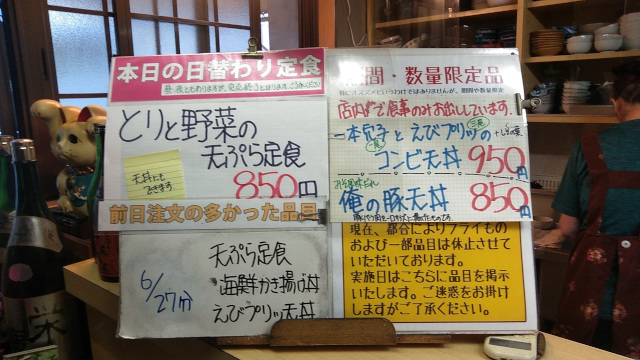 本日の日替わり定食
とりと野菜の
天ぷら定食
850円
天丼にも
できます
前日注文の多かった品目
6/27分
天ぷら定食
海鮮かき揚げ丼
えびプリッ天丼
期間・数量限定品
店内お食事のみお出ししています。
一本穴子とえびプリッの
二尾
コンビ天丼 950円
みそ風味だれ
俺の豚天丼 850円
現在、都合によりフライもの
および一部品目は休止させて
いただいております。
実施日はこちらに品目を掲示
いたします。ご迷惑をお掛け
しますがご了承ください。